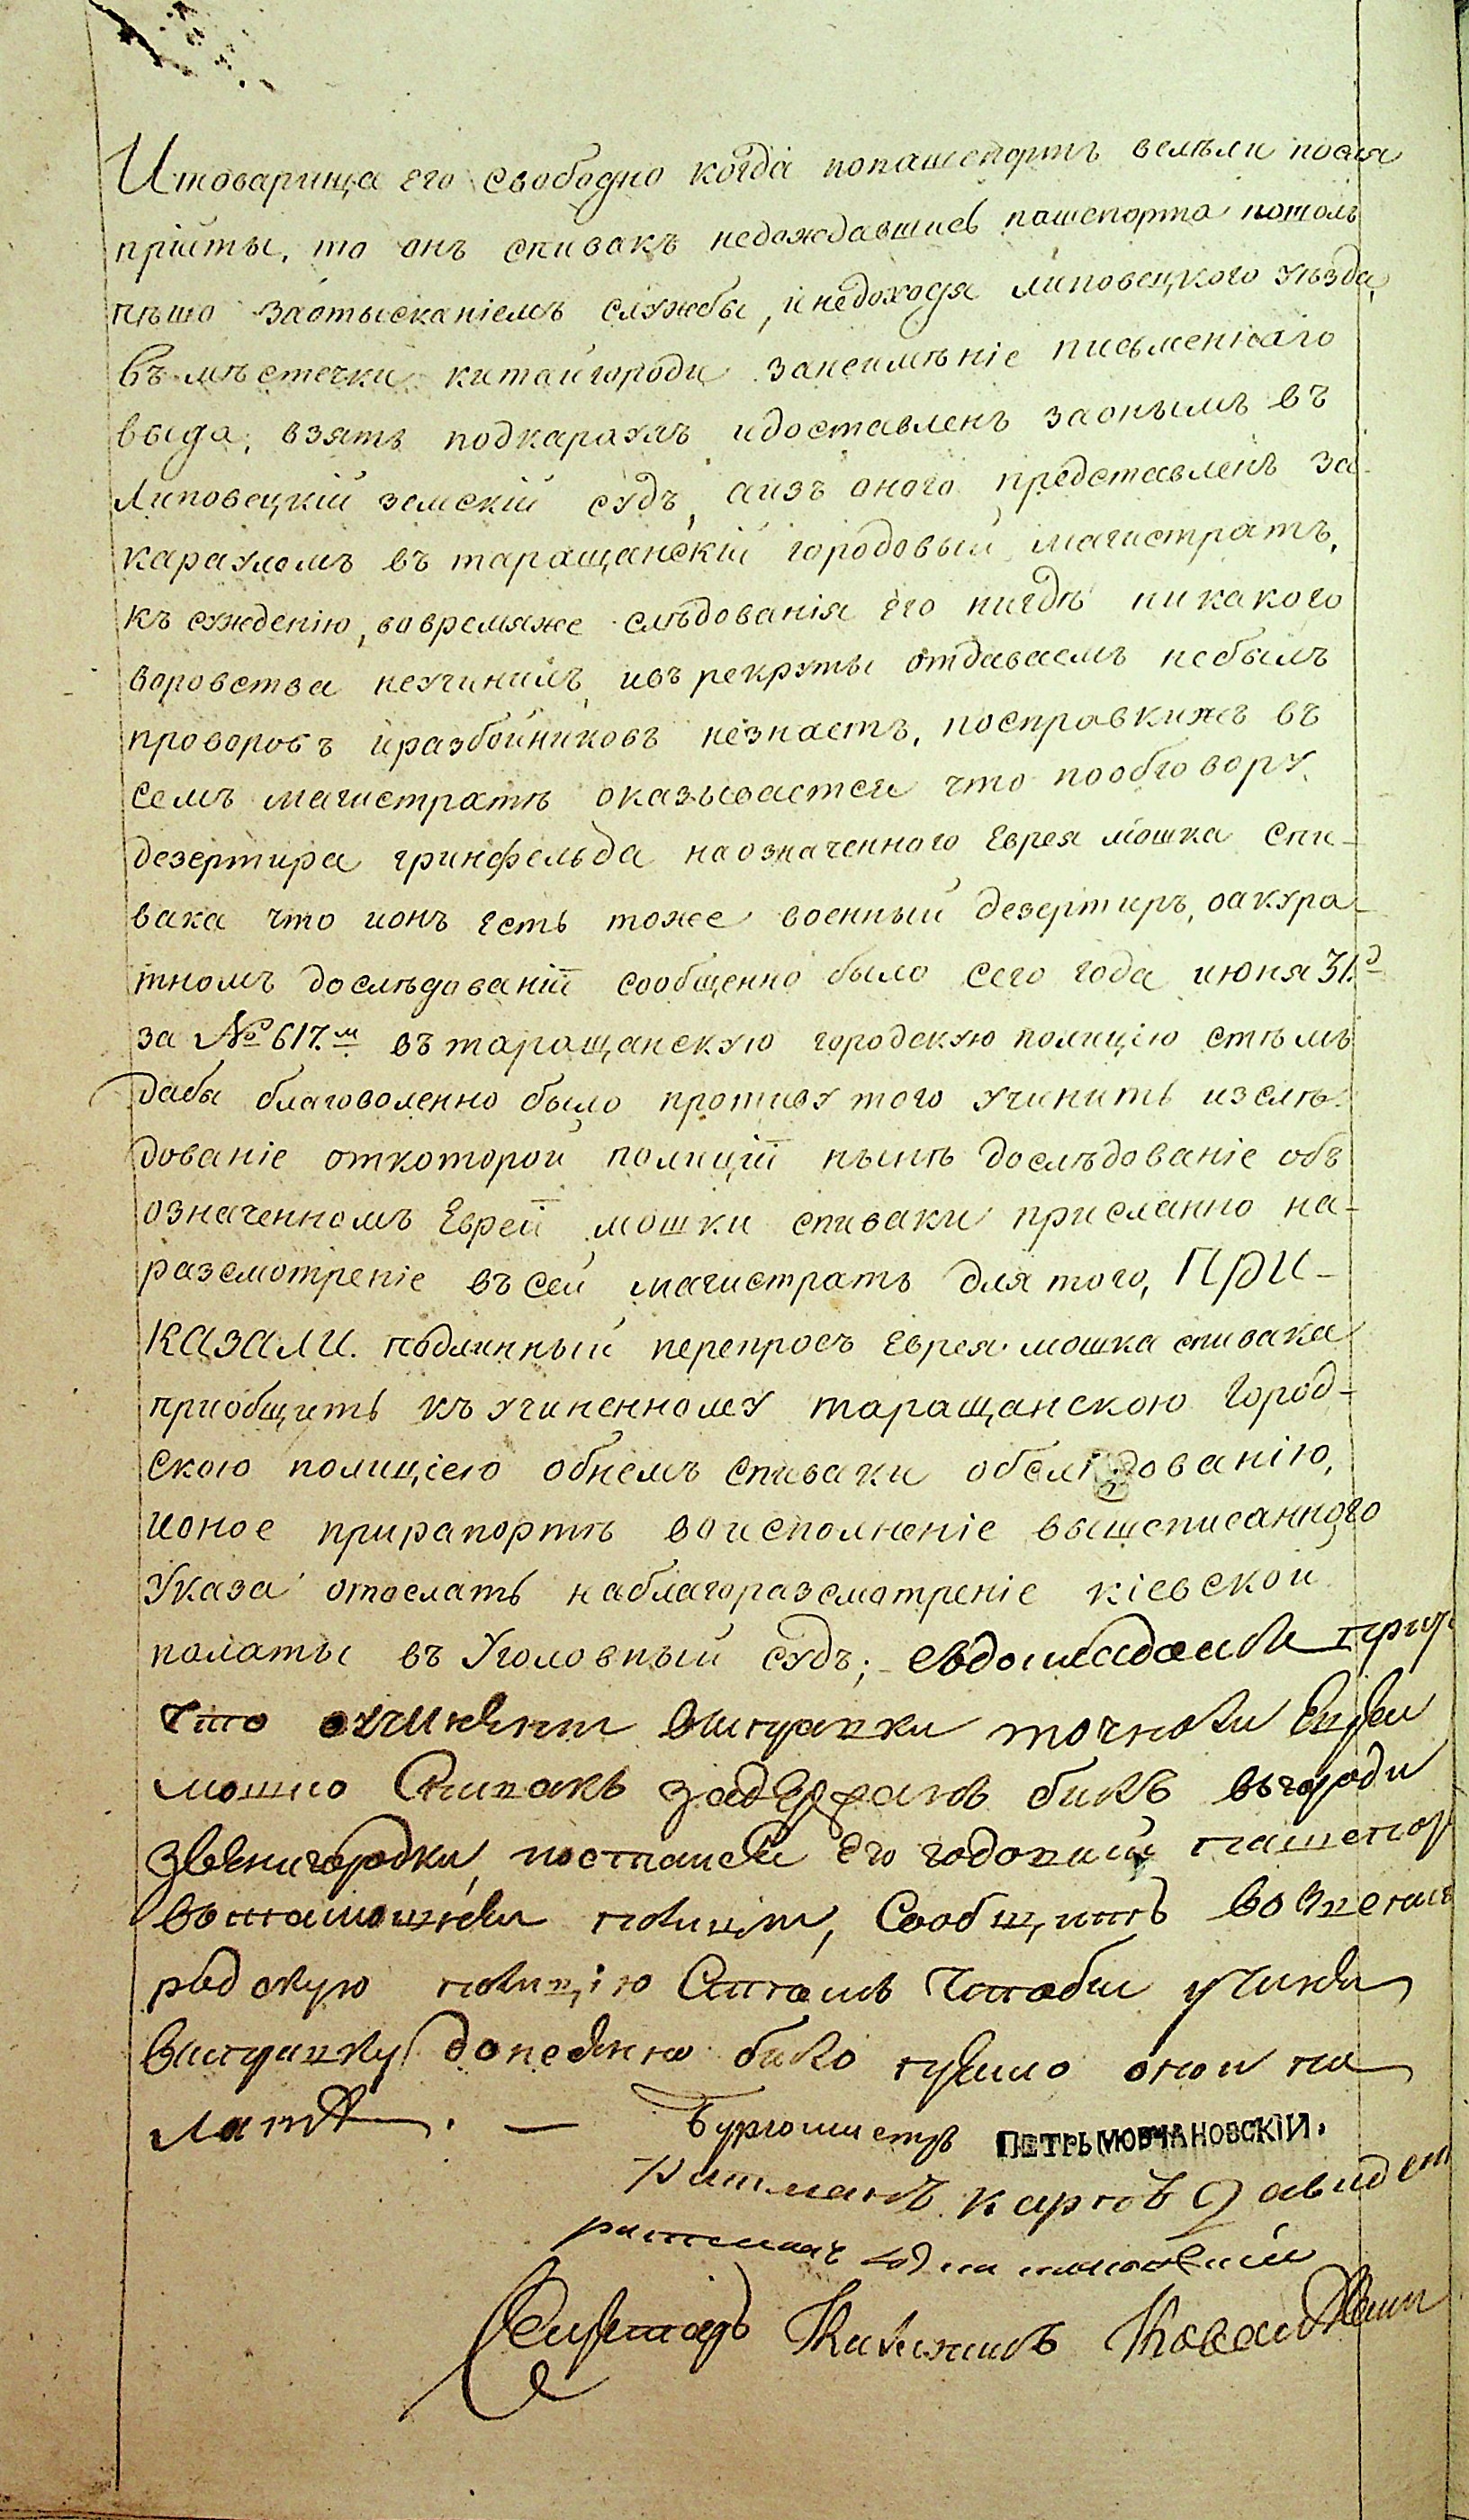 Итоварища его свободно когда попашепортъ велѣли посля
прійты, то онъ спивакъ недождавшись пашепорта пошолъ
пѣшо заотысканіемъ службы, инедоходя липовецкого уѣзда,
въ мѣстечки китайгороди занеимѣніе письменнаго
выда, взятъ подкараулъ идоставленъ заонымъ въ
Липовецкій земскій судъ, аизъ оного представленъ за
карауломъ въ таращанскій городовый магистратъ,
къ сужденію, вовремяже слѣдованія его нигдѣ никакого
воровства неучинилъ ивъ рекруты отдаваемъ небылъ
проворовъ иразбойниковъ незнаетъ, посправкижъ въ
семъ магистратѣ оказывается что пообговору
дезертира гринфельда наозначенного Еврея мошка спи-
вака что ионъ есть тоже военный дезертиръ, оакура-
тномъ дослѣдованіи сообщенно было сего года июня 31.д
за № 617.м въ таращанскую городскую полицію стѣмъ
дабы благоволенно было противу того учинить изслѣ-
дованіе откоторой полиціи нынѣ дослѣдованіе объ
означенномъ Евреи мошки спиваки присланно на-
разсмотреніе въ сей магистратъ для того, ПРИ-
КАЗАЛИ. подлинный перепросъ Еврея мошка спивака
приобщить къ учиненному таращанскою город-
скою полиціею обнемъ спиваки обслѣдованію,
ионое прирапортѣ воисполненіе вышеписанного
Указа отослать наблагоразсмотреніе кіевской
полаты въ Уголовный судъ;
что выправки точноли Еврей
мошко Спивакъ задержанъ билъ вгороди
звенигородки, его годовий пашепор
полиции, Сообщить взвениго
родскую полицію Стѣмъ Чтобы учиня
выправку донесенно било прямо оной па
латѣ. — Бургомистръ ПЕТРЪ МОВЧАНОВСКІЙ.
Ратманъ карпъ Давиден
ратманъ
Секретарь